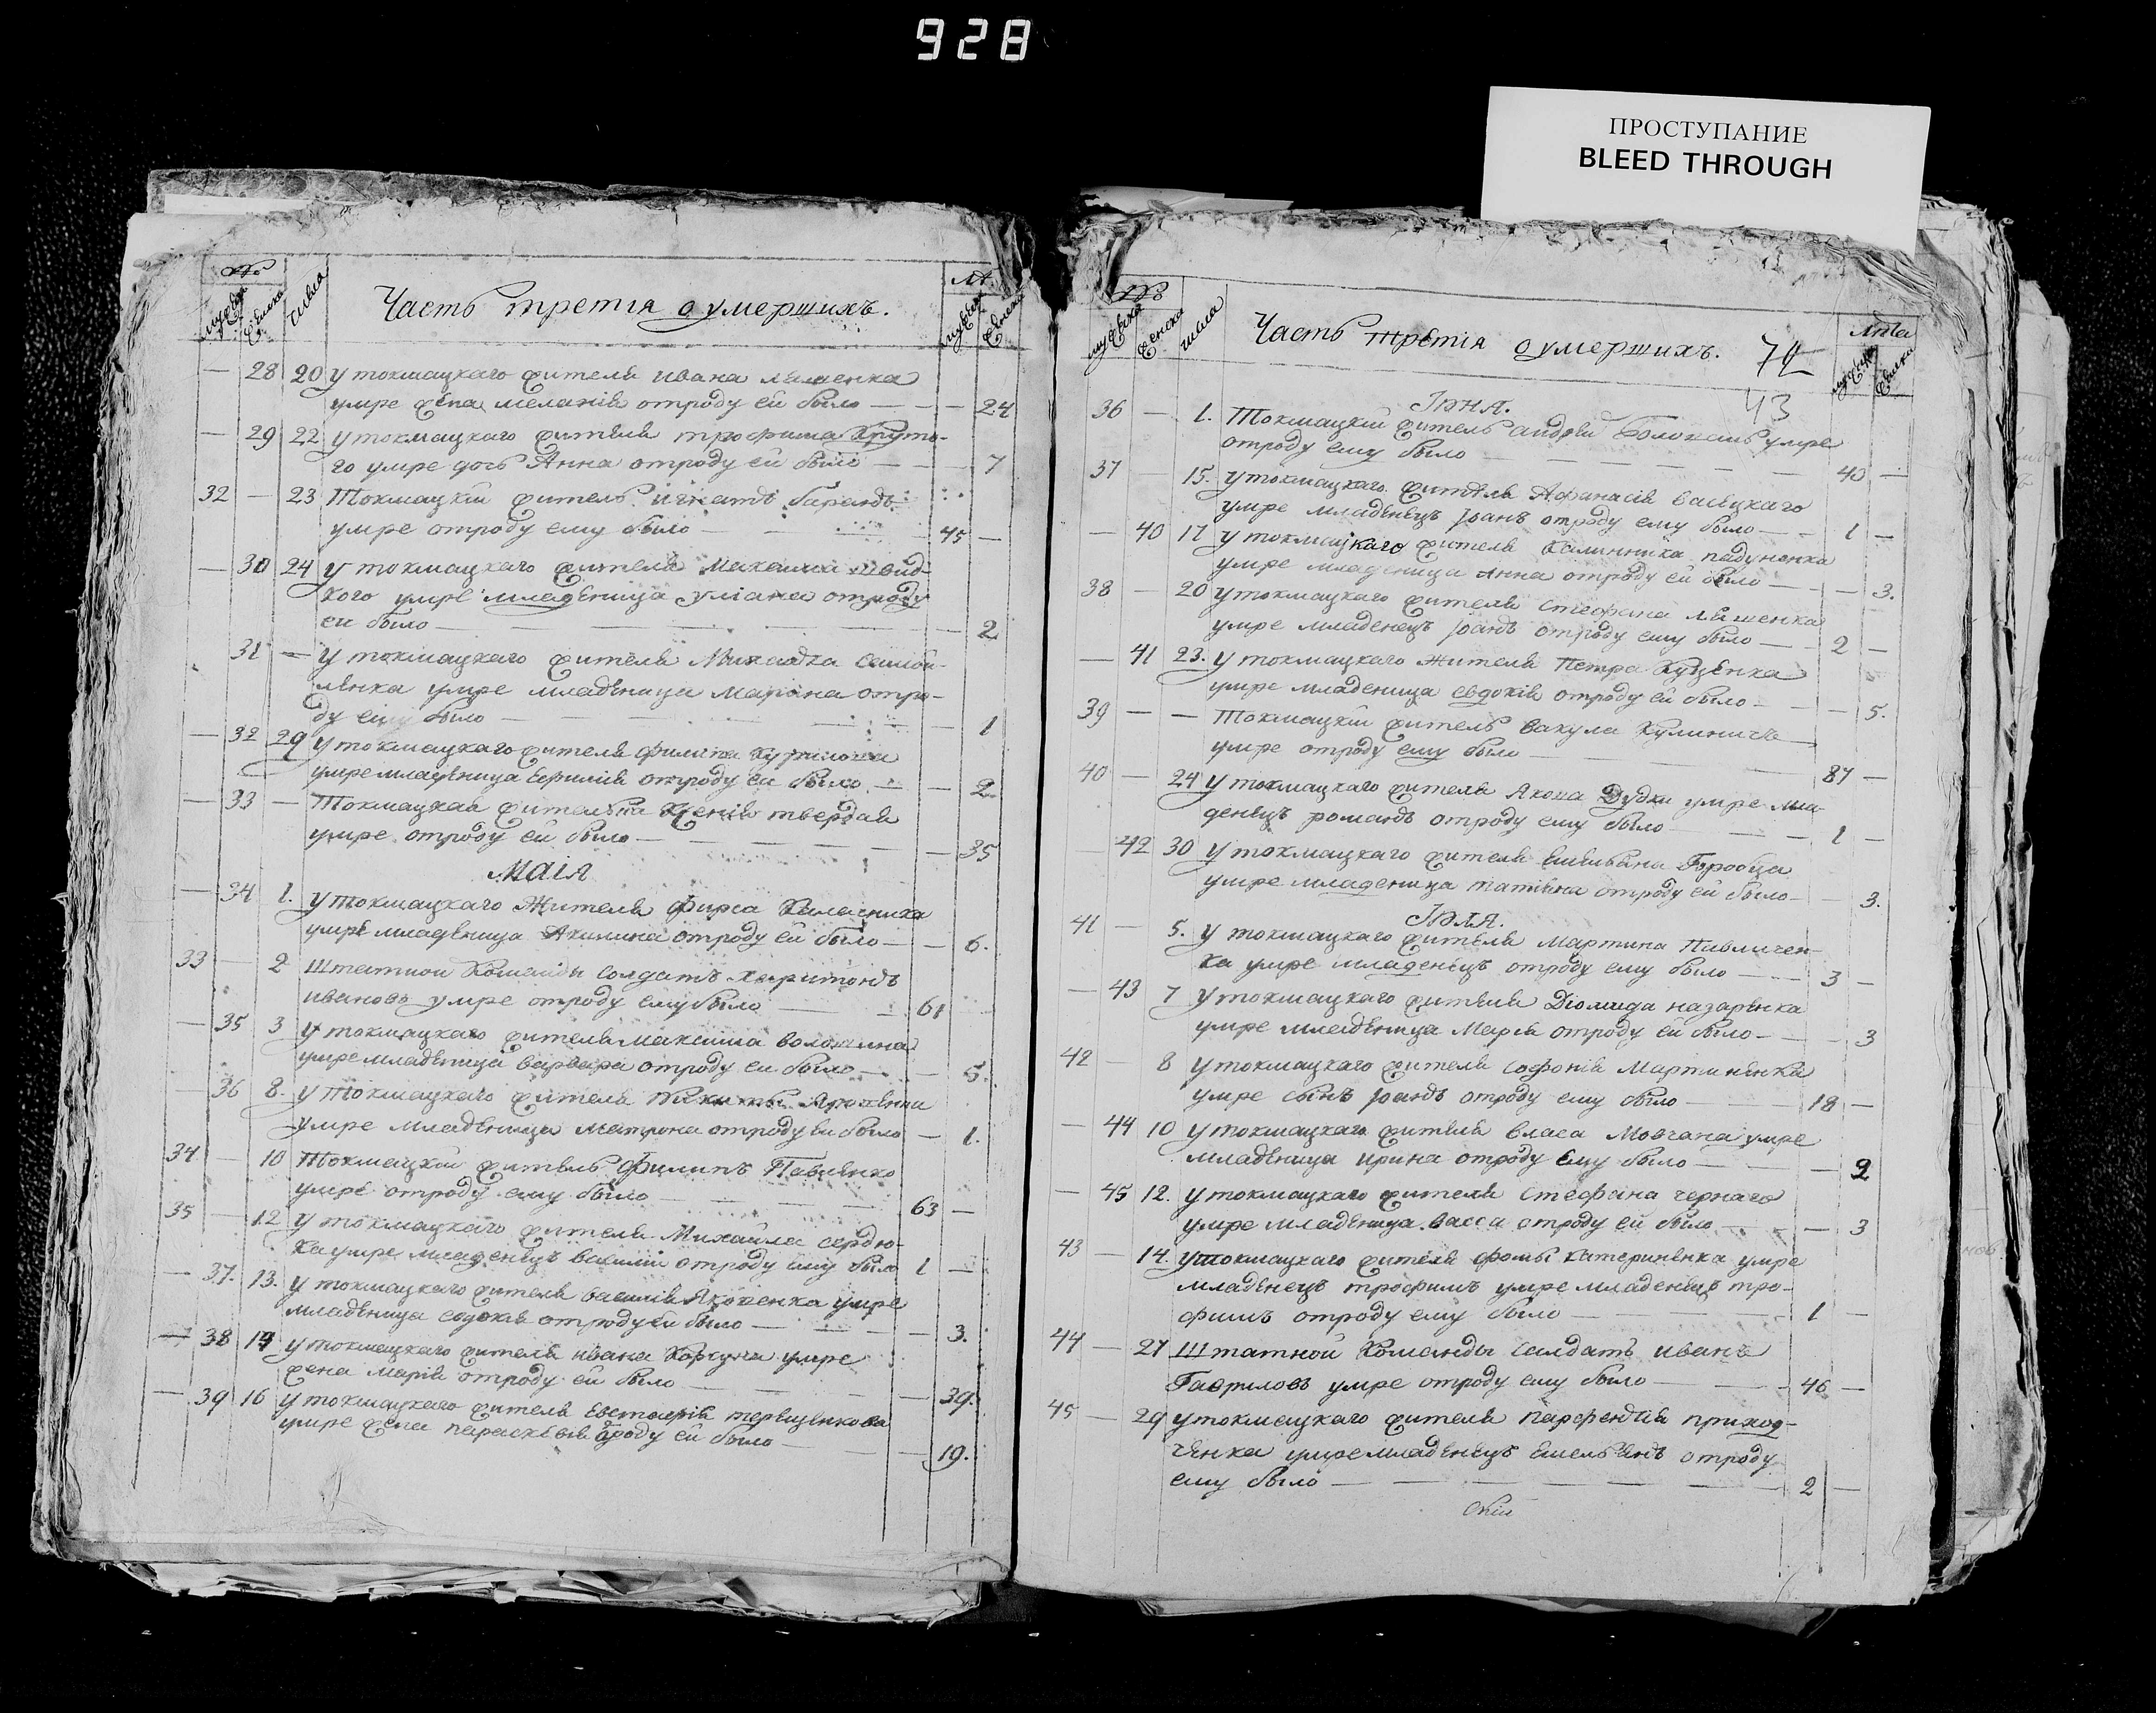 928
ПРОСТУПАНИЕ
BLEED THROUGH
№ Числа Часть третія о умершихъ. Лѣ
мужеска женска мужеска женска
— 28 20 у токмацкаго жителя ивана ляшенка
умре жена меланія отроду ей было — — — 24
— 29 22 у токмацкаго жителя трофима Круто-
го умре дочь Анна отроду ей было — — — 7
32 — 23 Токмацкій житель игнатъ
умре отроду ему было — — 45 —
— 30 24 у токмацкаго жителя Максима
кого умре младеница уліана отроду
ей было — — — 2
31 — у токмацкаго жителя
ленка умре младеница Марина отро-
ду ей было — — — 1
— 32 29 у токмацкаго жителя филипа
умре младеница Ефимія отроду ей было — — 2
— 33 — Токмацкая жителька Ксенія твердая
умре отроду ей было — — — 35
Маія
— 34 1. у токмацкаго Жителя Фирса Калесника
умре младеница Акилина отроду ей было — — 6.
33 — 2 Штатной Команды солдатъ харитонъ
ивановъ умре отроду ему было — — 61
— 35 3 у токмацкаго жителя максима
умре младеница варвара отроду ей было — — 5.
— 36 8. у токмацкаго жителя Никиты
умре младеница матрона отроду ей было — 1.
34 — 10 Токмацкій житель Филипъ
умре отроду ему было — — 63 —
35 — 12 у токмацкаго жителя Михайла сердю-
ка умре младенецъ василій отроду ему было 1 —
— 37. 13. у токмацкаго жителя василія Яковенка умре
младеница евдокія отроду ей было — — — 3.
— 38 14 у токмацкаго жителя ивана Коржуча умре
жена марія отроду ей было — — — 39.
— 39 16 у токмацкаго жителя Евстафія терещенкова
умре жена параскевія отроду ей было — — 19.
№ числа Часть третія о умершихъ. 74 лѣта
мужеска женска мужеска женска
43
Іюня.
36 — 1. Токмацкій житель андрей умре
отроду ему было — — — 40 —
37 15. у токмацкаго жителя Афанасія васецкаго
умре младенецъ іоанъ отроду ему было — — 1 —
— 40 17 у токмацкаго жителя Калинника падуненка
умре младеница Анна отроду ей было — — 3.
38 — 20 у токмацкаго жителя стефана ляшенка
умре младенецъ іоанъ отроду ему было — 2 —
— 41 23. у токмацкаго жителя Петра Куценка
умре младеница евдокія отроду ей было — — — 5.
39 — — Токмацкій житель вакула Кулиничъ
умре отроду ему было — — 87 —
40 — 24 у токмацкаго жителя Якова Дудки умре мла-
денецъ романъ отроду ему было — — 1 —
— 42 30 у токмацкаго жителя емельяна Горобца
умре младеница татіяна отроду ей было — — 3.
Іюля.
41 — 5. у токмацкаго жителя мартина Павличен-
ка умре младенецъ отроду ему было — — 3 —
— 43 7 у токмацкаго жителя Діомида назаренка
умре младеница Марія отроду ей было — — — 3
42 8 у токмацкаго жителя софонія Мартиненка
умре сынъ іоанъ отроду ему было — 18 —
— 44 10 у токмацкаго жителя власа Мовчана умре
младеница ирина отроду ему было — — — 2
— 45 12. у токмацкаго жителя стефана чернаго
умре младеница васса отроду ей было — — 3
43 — 14. у токмацкаго жителя фомы катериненка умре
младенецъ трофимъ умре младенецъ тро-
фимъ отроду ему было — — 1 —
44 — 27 Штатной Команды салдатъ иванъ
Гавриловъ умре отроду ему было — — 46 —
45 — 29 у токмацкаго жителя парфентія приход-
ченка умре младенецъ емельянъ отроду
ему было — — — — 2 —